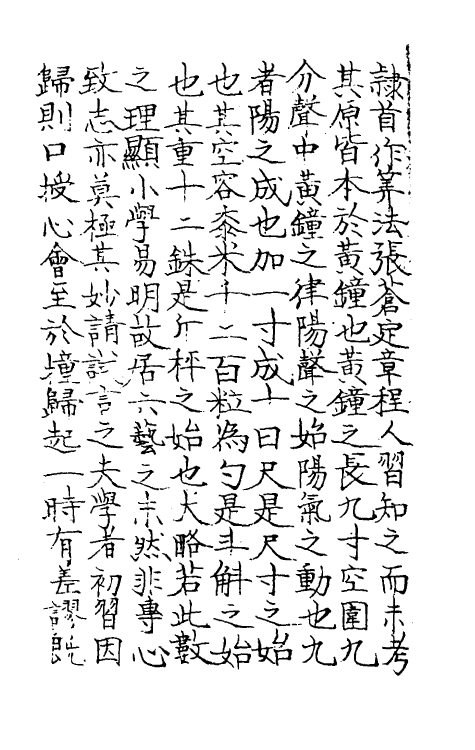 隷首作筭法張蒼定章程人習知之而未考
其原皆本於黃鐘也黃鐘之長九寸空圍九
分聲中黃鐘之律陽聲之始陽氣之動也九
者陽之成也加一寸成十曰尺是尺寸之始
也其空容黍米千二百粒為勺是斗斛之始
也其重十二銖是斤秤之始也大略若此數
之理顯小學易明故居六藝之末然非專心
致志亦莫極其妙請試言之夫學者初習因
歸則口授心會至於撞歸起一時有差謬既